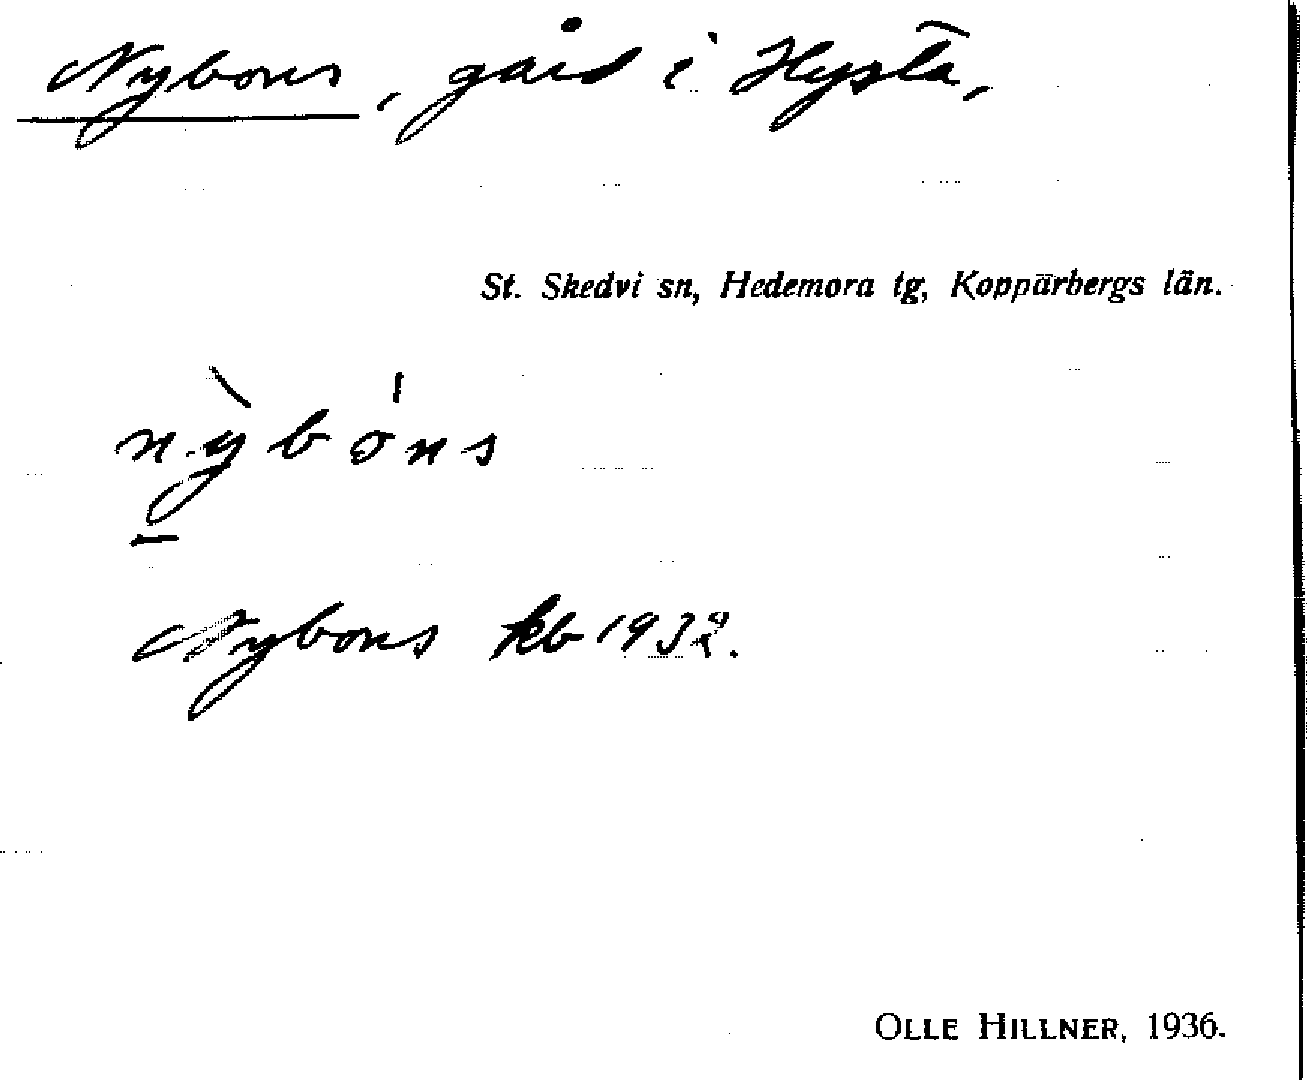 Nybons, gård i Hysta,
St. Skedvi sn, Hedemora tg, Kopparbergs län.
nỳbóns
Nybons kb 1932.
OLLE HILLNER, 1936.